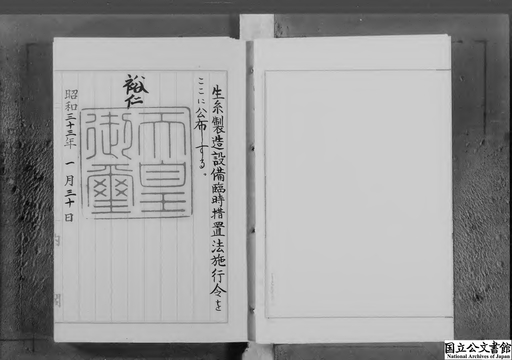 生糸製造設備臨時措置法施行令を
ここに公布する。
裕仁
天皇
御璽
昭和三十三年一月三十日
国立公文書館
National Archives of Japan